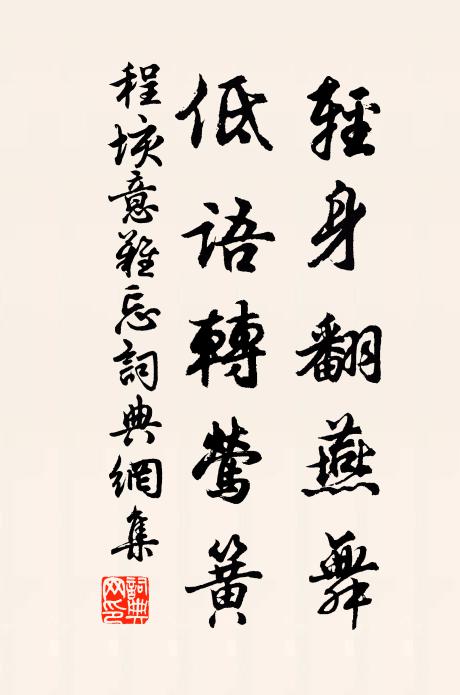 輕身翻燕舞
低語轉鶯簧
程垓意難忘詞典網集
詞典網印